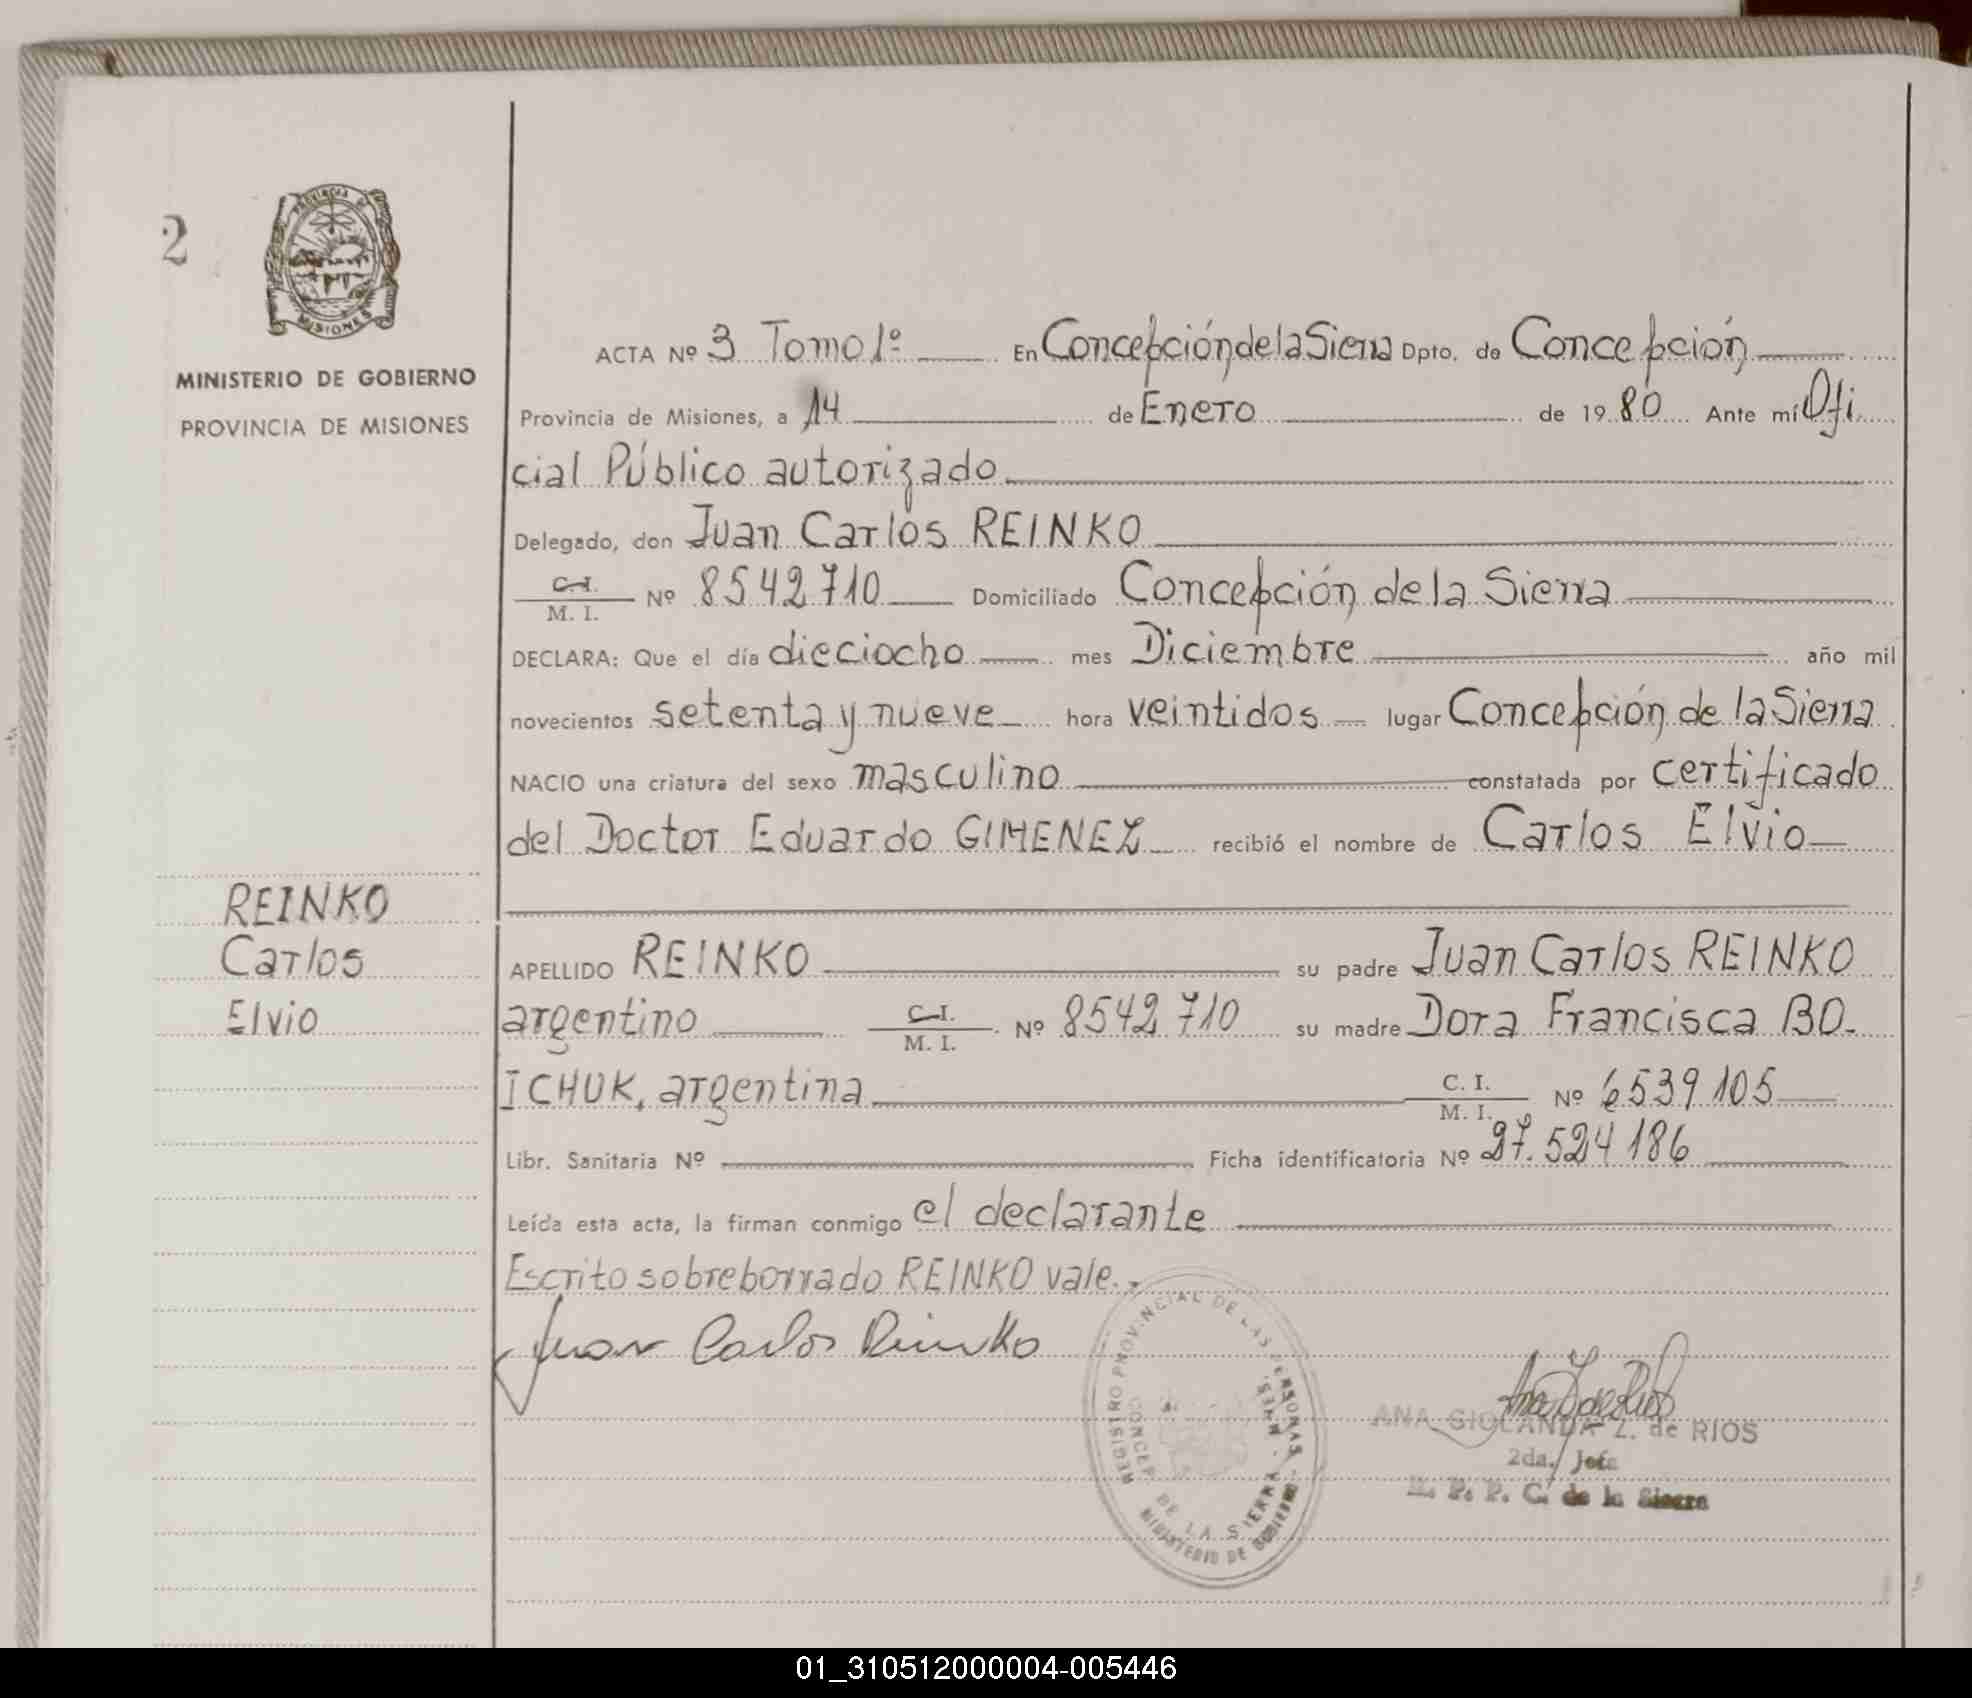 2
PROVINCIA DE
MISIONES
MINISTERIO DE GOBIERNO
PROVINCIA DE MISIONES
REINKO
Carlos
Elvio
ACTA Nº 3 Tomo 1º En Concepción de la Sierra Dpto. de Concepción
Provincia de Misiones, a 14 de Enero de 1980 Ante mí Ofi
cial Público autorizado
Delegado, don Juan Carlos REINKO
C.I. / M. I. Nº 8542710 Domiciliado Concepción de la Sierra
DECLARA: Que el día dieciocho mes Diciembre año mil
novecientos setenta y nueve hora veintidos lugar Concepción de la Sierra
NACIO una criatura del sexo masculino constatada por certificado
del Doctor Eduardo GIMENEZ recibió el nombre de Carlos Elvio
APELLIDO REINKO su padre Juan Carlos REINKO
argentino C.I. / M. I. Nº 8542710 su madre Dora Francisca BO-
ICHUK, argentina C. I. / M. I. Nº 6539105
Libr. Sanitaria Nº Ficha identificatoria Nº 27.524186
Leída esta acta, la firman conmigo el declarante
Escrito sobreborrado REINKO vale.-
Juan Carlos Reinko
REGISTRO PROVINCIAL DE LAS PERSONAS - MINISTERIO DE GOBIERNO
CONCEP. DE LA SIERRA - MNES.
ANA GIOLANDA Z. de RIOS
2da. Jefa
R. P. P. C. de la Sierra
01_310512000004-005446